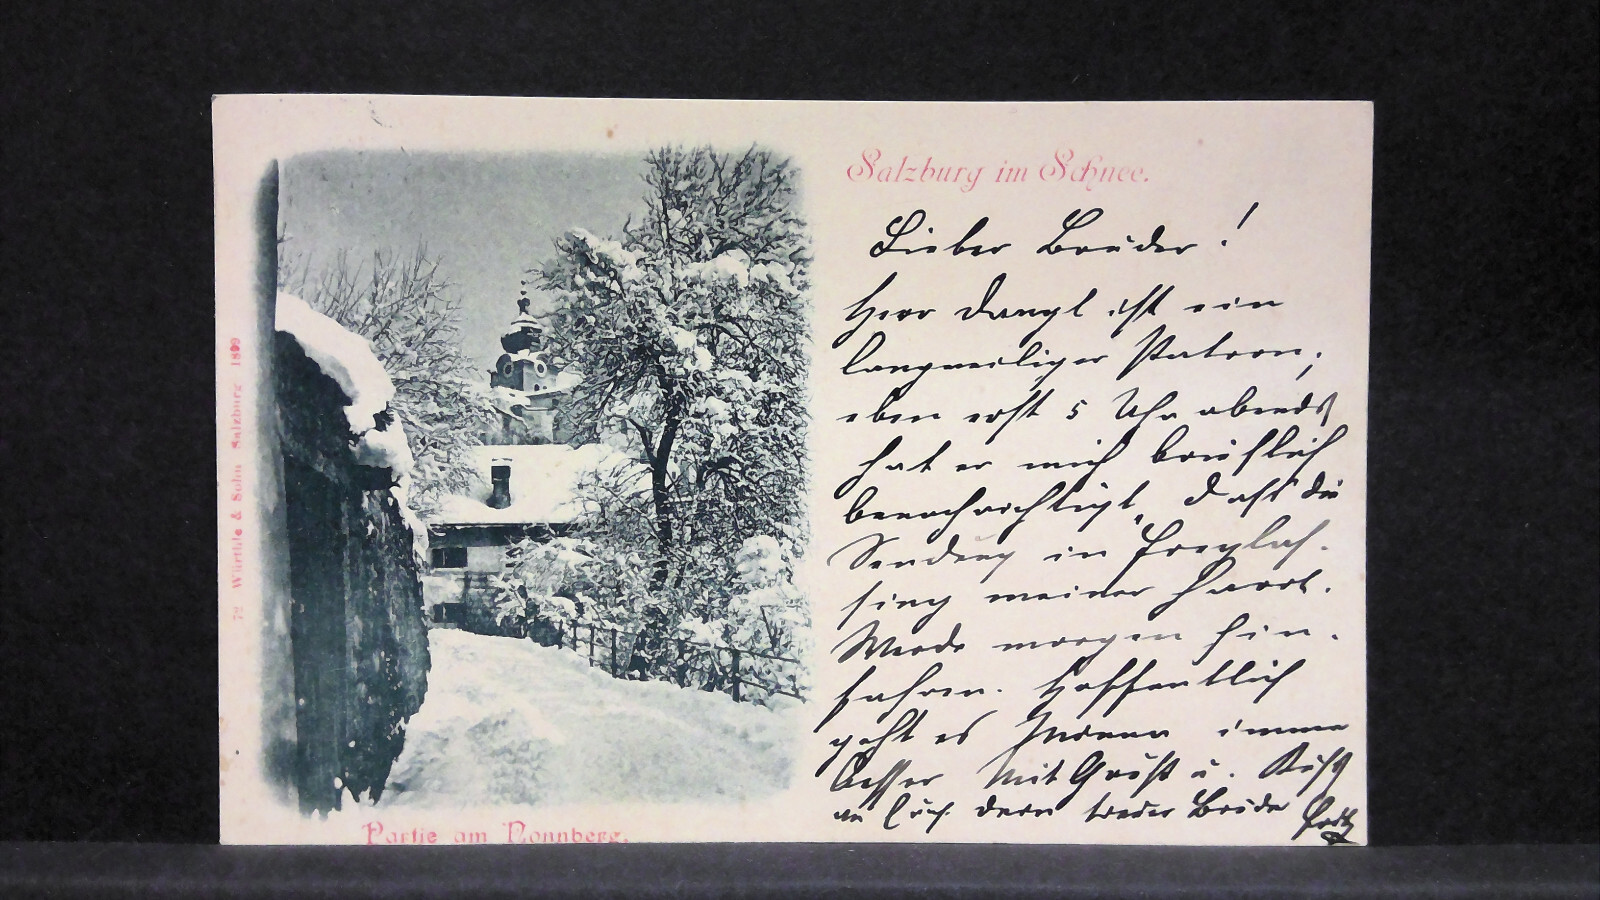 Salzburg im Schnee.
Lieber Bruder !
Herr Dangl ist ein
langweiliger Patron;
eben erst 5 Uhr abends
hat er mich brieflich
benachrichtigt, daß die
Sendung in Freylas-
sing meiner harrt.
Werde morgen hin-
fahren. Hoffentlich
geht es immer
besser Mit Gruß u. Kuß
an Euch dein treuer Bruder Fritz
Partie am Nonnberg.
72 Würthle & Sohn Salzburg 1899